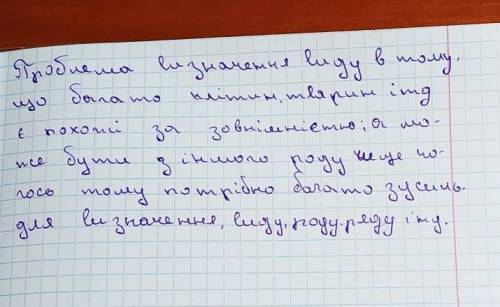 Проблема визначення виду в тому,
що багато клітин, тварин ітд
є похожі за зовнімністю, а мо-
же бути з іншого роду чи ще чо-
гось тому потрібно багато зусиль
для визначення, виду, роду, ряду і тд.